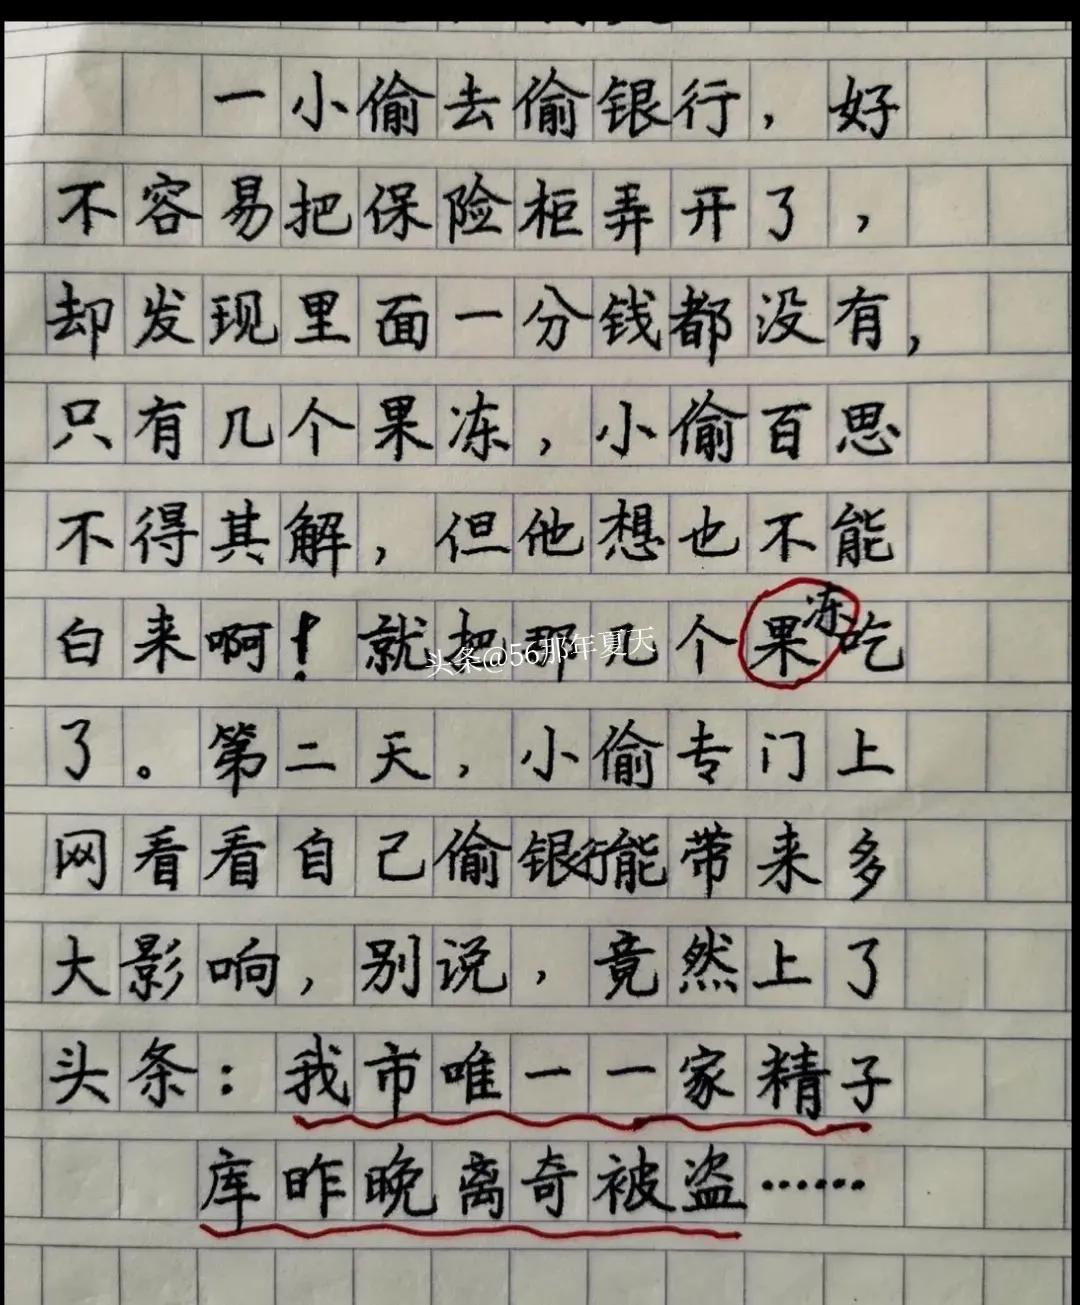 一小偷去偷银行，好
不容易把保险柜弄开了，
却发现里面一分钱都没有，
只有几个果冻，小偷百思
不得其解，但他想也不能
白来啊！就把那几个果冻吃
头条@56那年夏天
了。第二天，小偷专门上
网看看自己偷银行能带来多
大影响，别说，竟然上了
头条：我市唯一一家精子
库昨晚离奇被盗……